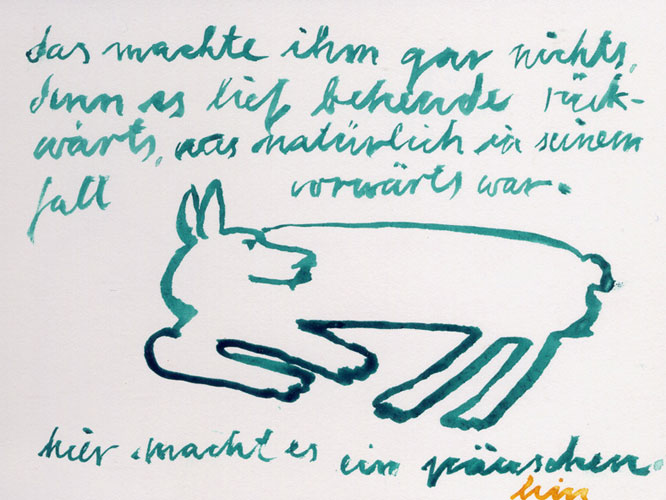 das machte ihm gar nichts,
denn es lief behende rück-
wärts, was natürlich in seinem
fall vorwärts war.
hier macht es ein päuschen.